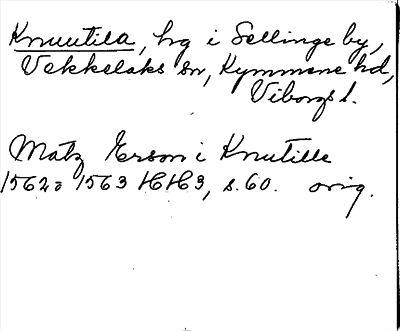 Knuutila, hg i Sellinge by,
Vekkelaks sn, Kymmene hd,
Viborgs l.
Matz Erson i Knutille
1562 1563 HH3, s. 60. orig.